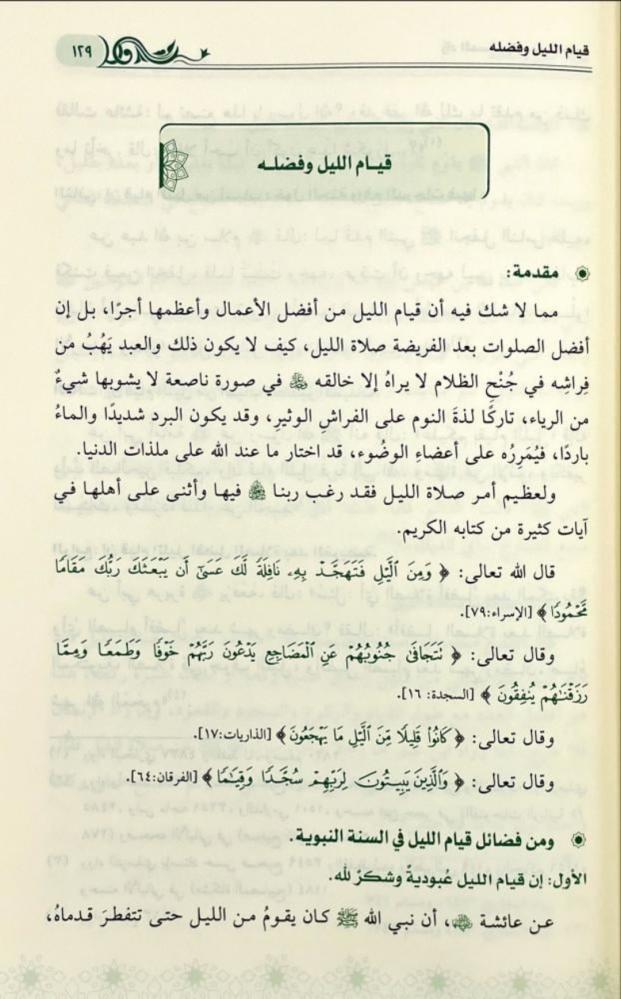 قيام الليل وفضله
١٢٩
قيـام الليل وفضلـه
مقدمة:
مما لا شك فيه أن قيام الليل من أفضل الأعمال وأعظمها أجرًا، بل إن
أفضل الصلوات بعد الفريضة صلاة الليل، كيف لا يكون ذلك والعبد يَهُبُ من
فِراشِه في جُنْحِ الظلام لا يراهُ إلا خالقه ﷻ في صورة ناصعة لا يشوبها شيءٌ
من الرياء، تاركًا لذةَ النوم على الفراشِ الوثيرِ، وقد يكون البرد شديدًا والماءُ
باردًا، فيُمَرِرُه على أعضاءِ الوضُوء، قد اختار ما عند الله على ملذات الدنيا.
ولعظيم أمر صلاة الليل فقد رغب ربنا ﷻ فيها وأثنى على أهلها في
آيات كثيرة من كتابه الكريم.
قال الله تعالى: ﴿ وَمِنَ ٱلَّيْلِ فَتَهَجَّدْ بِهِۦ نَافِلَةً لَّكَ عَسَىٰٓ أَن يَبْعَثَكَ رَبُّكَ مَقَامًا
مَّحْمُودًا ﴾ [الإسراء:٧٩].
وقال تعالى: ﴿ نَتَجَافَىٰ جُنُوبُهُمْ عَنِ ٱلْمَضَاجِعِ يَدْعُونَ رَبَّهُمْ خَوْفًا وَطَمَعًا وَمِمَّا
رَزَقْنَٰهُمْ يُنفِقُونَ ﴾ [السجدة: ١٦].
وقال تعالى: ﴿ كَانُوا۟ قَلِيلًا مِّنَ ٱلَّيْلِ مَا يَهْجَعُونَ ﴾ [الذاريات:١٧].
وقال تعالى: ﴿ وَٱلَّذِينَ يَبِيتُونَ لِرَبِّهِمْ سُجَّدًا وَقِيَٰمًا ﴾ [الفرقان:٦٤].
ومن فضائل قيام الليل في السنة النبوية.
الأول: إن قيام الليل عُبوديةٌ وشكرٌ لله.
عن عائشة ﵂، أن نبي الله ﷺ كان يقومُ من الليل حتى تتفطرَ قدماهُ،